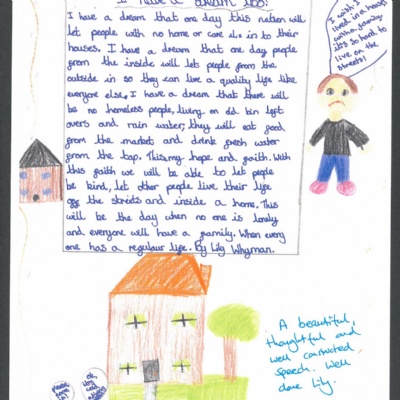 I have a dream too!
I have a dream that one day this nation will
let people with no home or care else in to their
houses. I have a dream that one day people
from the inside will let people from the
outside in so they can live a quality life like
everyone else. I have a dream that there will
be no homeless people, living on old bin left
overs and rain water; they will eat good
from the market and drink fresh water
from the tap. This my hope and faith. With
this faith we will be able to let people
be kind, let other people live their life
off the streets and inside a home. This
will be the day when no one is lonely
and everyone will have a family. When every
one has a regulaur life. By Lily Whyman.
I wish I
lived in a house
with a family
it's so hard to
live on the
streets!
A beautiful,
thoughtful and
well constructed
speech. Well
done Lily.